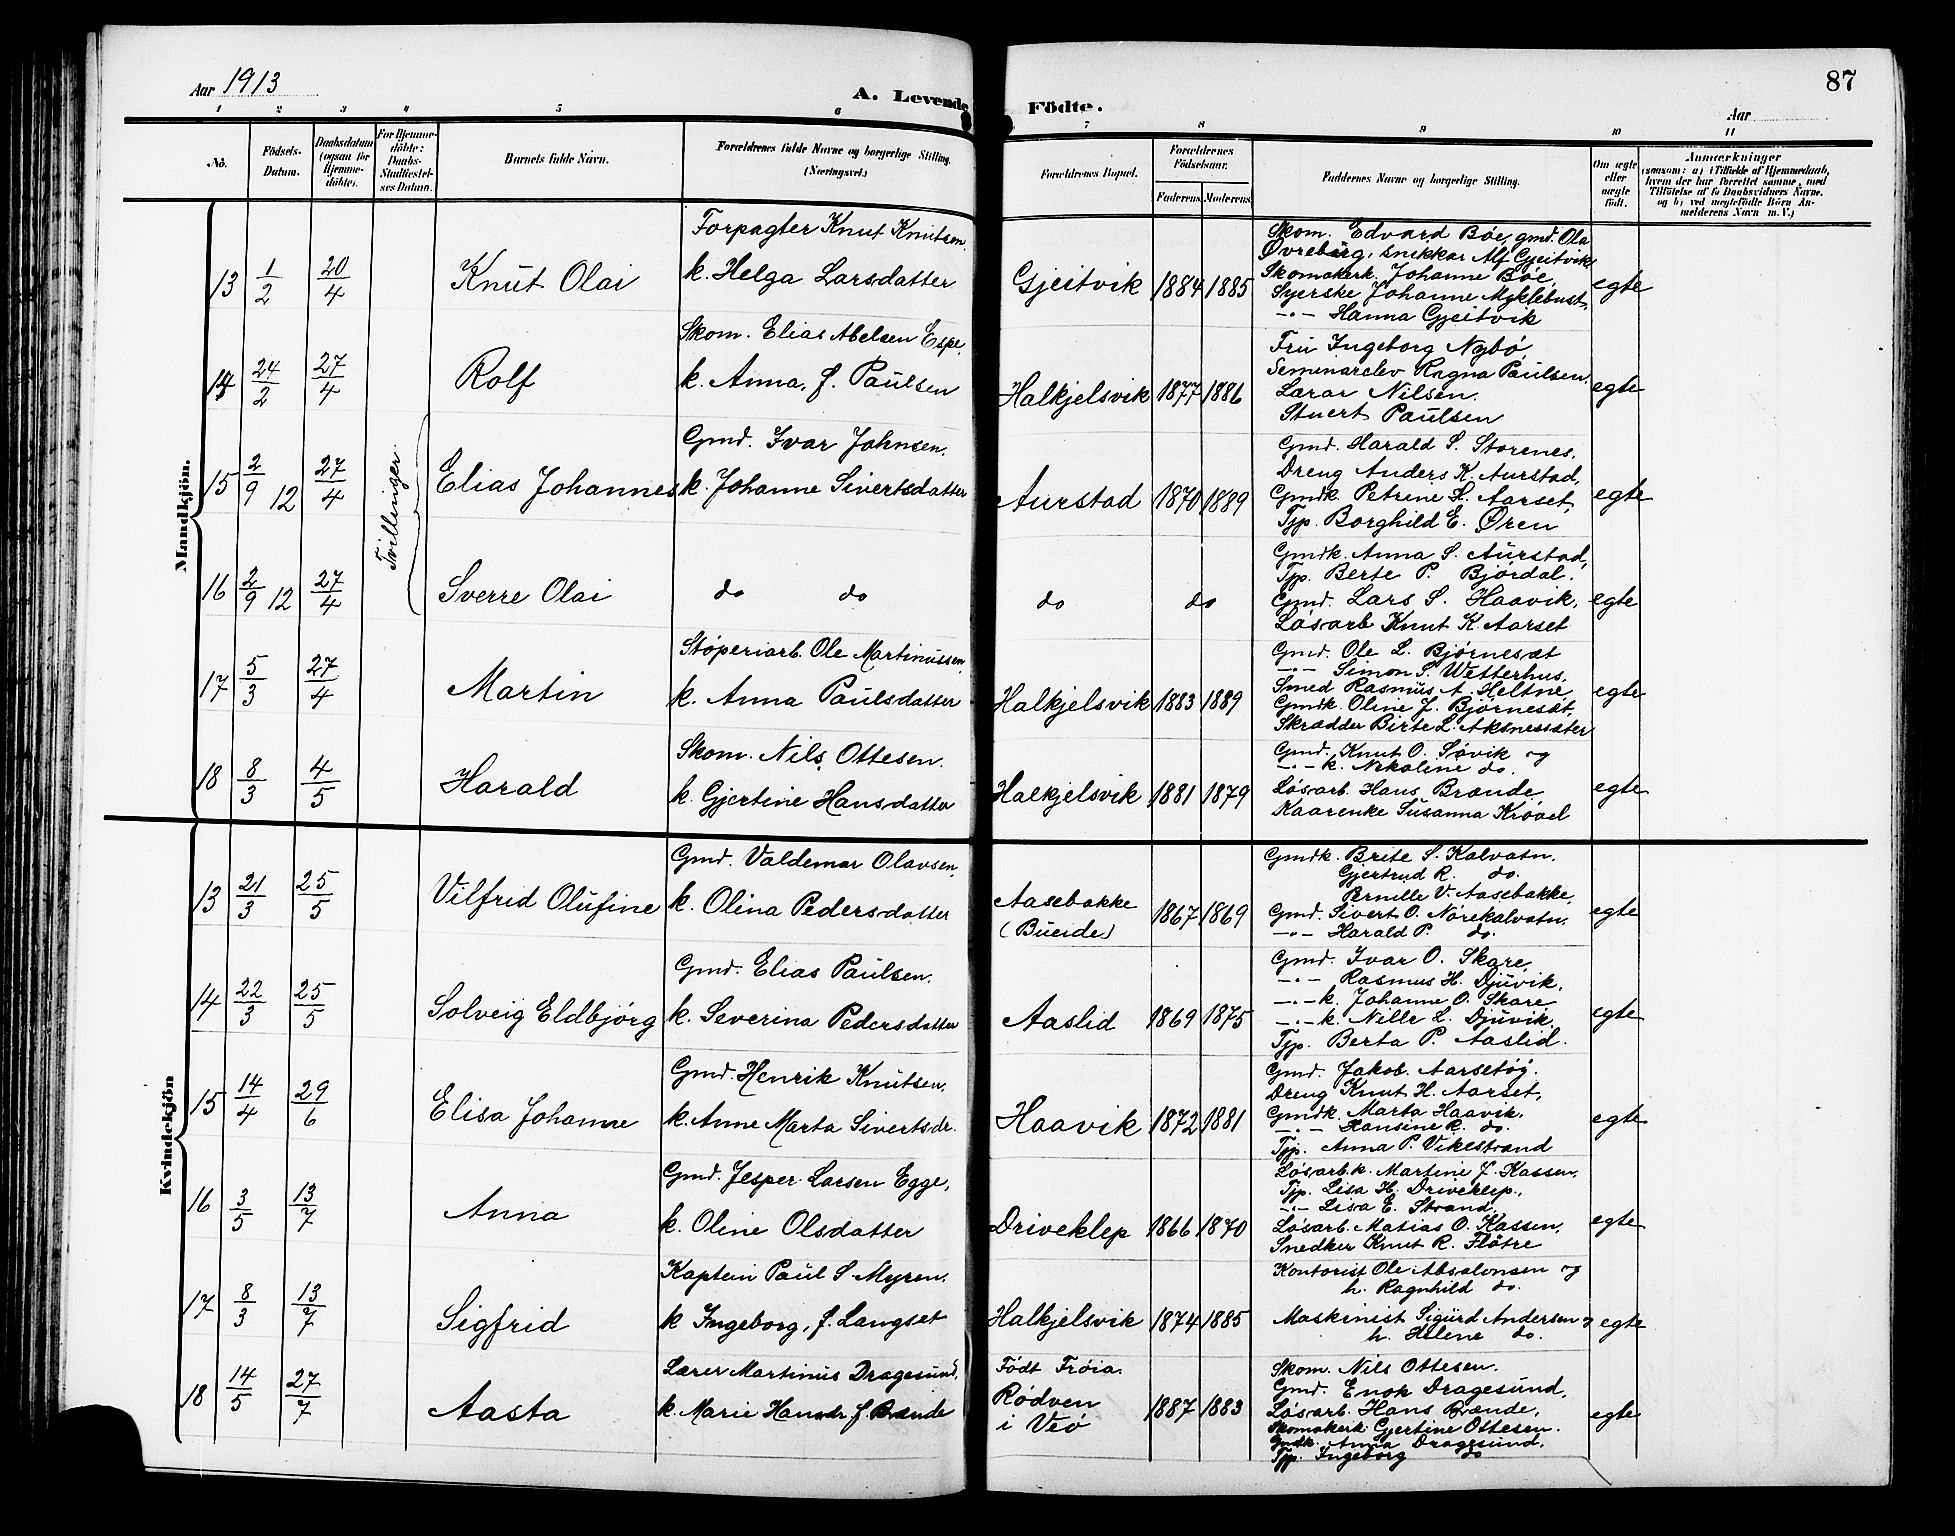 87
Aar 1913
A. Levende Födte.
Aar
1 2 3 4 5 6 7 8 9 10 11
No.
Födsels-Datum.
Daabsdatum (ogsaa for Hjemme-döbte).
For Hjemme-döbte: Daabs-Stadfæstel-ses Datum.
Barnets fulde Navn.
Forældrenes fulde Navne og borgerlige Stilling. (Næringsvei.)
Forældrenes Bopæl.
Forældrenes Födselsaar.
Faderens Moderens
Faddernes Navne og borgerlige Stilling.
Om ægte eller uægte födt.
Anmærkninger
(saasom: a) i Tilfælde af Hjemmedaab, hvem der har forrettet samme, med Tilföielse af to Daabsvidners Navne, og b) ved uægtefödte Börn An-melderens Navn m. V.)
Mandkjön.
13 1/2 20/4 Knut Olai
Forpagter Knut Knutsen,
k. Helga Larsdatter
Gjeitvik 1884 1885
Skom. Edvard Böe, gmd. Ola
Övrebärg, snikkar Alf Gjeitvik
Skomakerk. Johanne Böe,
Syerske Johanne Myklebust,
-"- Hanna Gjeitvik
egte
14 24/2 27/4 Rolf
Skom. Elias Abelsen Espe,
k. Anna, f. Paulsen
Halkjelsvik 1877 1886
Fru Ingeborg Nybö,
Seminarelev Ragna Paulsen.
Lærar Nilsen.
Stuert Paulsen
egte
Tvillinger
15 2/9 12 27/4 Elias Johannes
Gmd. Ivar Johnsen,
k. Johanne Sivertsdatter
Aurstad 1870 1889
Gmd. Harald S. Storenes.
Dreng Anders K. Aurstad,
Gmdk. Petrine L. Aarset,
Tjp. Borghild E. Øren
egte
16 2/9 12 27/4 Sverre Olai
do do
do do
Gmdk. Anna S. Aurstad,
Tjp. Berte P. Björdal.
Gmd. Lars S. Haavik,
Lösarb Knut K. Aarset
egte
17 5/3 27/4 Martin
Støperiarb. Ole Martinussen,
k. Anna Paulsdatter
Halkjelsvik 1883 1889
Gmd. Ole L. Bjørnesæt
-"- Simon S. Wetterhus.
Smed Rasmus A. Heltne,
Gmdk. Oline J. Bjørnesæt.
Skrædder Birte L. Aksnessæter
egte
18 8/3 4/5 Harald
Skom. Nils Ottesen.
k. Gjertine Hansdatter
Halkjelsvik 1881 1879
Gmd. Knut O. Søvik og
-"- k. Nikoline do.
Lösarb. Hans Brænde.
Kaarenke Susanna Krøvel
egte
Kvindekjön
13 21/3 25/5 Vilfrid Olufine
Gmd. Valdemar Olavsen,
k. Olina Pedersdatter
Aasebakke
(Bueide)
1867 1869
Gmdk. Brite S. Kalvatn.
Gjertrud R. do.
Pernille V. Aasebakke,
Gmd. Sivert O. Nörekalvatn.
-"- Harald P. do.
egte
14 22/3 25/5 Solveig Eldbjörg
Gmd. Elias Paulsen.
k. Severina Pedersdatter
Aaslid 1869 1875
Gmd. Ivar O. Skare,
-"- Rasmus H. Djuvik,
-"- k. Johanne O. Skare
-"- k. Nille L. Djuvik.
Tjp. Berta P. Aaslid.
egte
15 14/4 29/6 Elisa Johanne
Gmd. Henrik Knutsen.
k. Anne Marta Sivertsdr.
Haavik 1872 1881
Gmd. Jakob. Aarsetøg.
Dreng Knut H. Aarset,
Gmdk. Marta Haavik,
-"- Hansine K. do.
Tjp. Anna P. Vikestrand
egte
16 3/5 13/7 Anna
Gmd. Jesper Larsen Egge,
k. Oline Olsdatter
Driveklep 1866 1870
Lösarb.k. Martine J. Kassen,
Tjp. Lisa H. Driveklep.,
-"- Lisa E. Strand,
Lösarb. Matias O. Kassen,
Snedker Knut R. Flötre
egte
17 8/3 13/7 Sigfrid
Kaptein Paul S. Myren.
k Ingeborg, f. Langset
Halkjelsvik 1874 1885
Kontorist Ole Absalonsen og
h. Ragnhild do.
Maskinist Sigurd Andersen og
h. Helene do.
egte
18 14/5 27/7 Aasta
Lærer Martinus Dragesund,
k. Marie Hansdr. f. Brænde
Födt Fröia.
Rödven
i Veö
1887 1883
Skom. Nils Ottesen.
Gmd. Enok Dragesund,
Lösarb. Hans Brænde,
Skomakerk. Gjertine Ottesen.
Gmdk. Anna Dragesund.
Tjp. Ingeborg do
egte